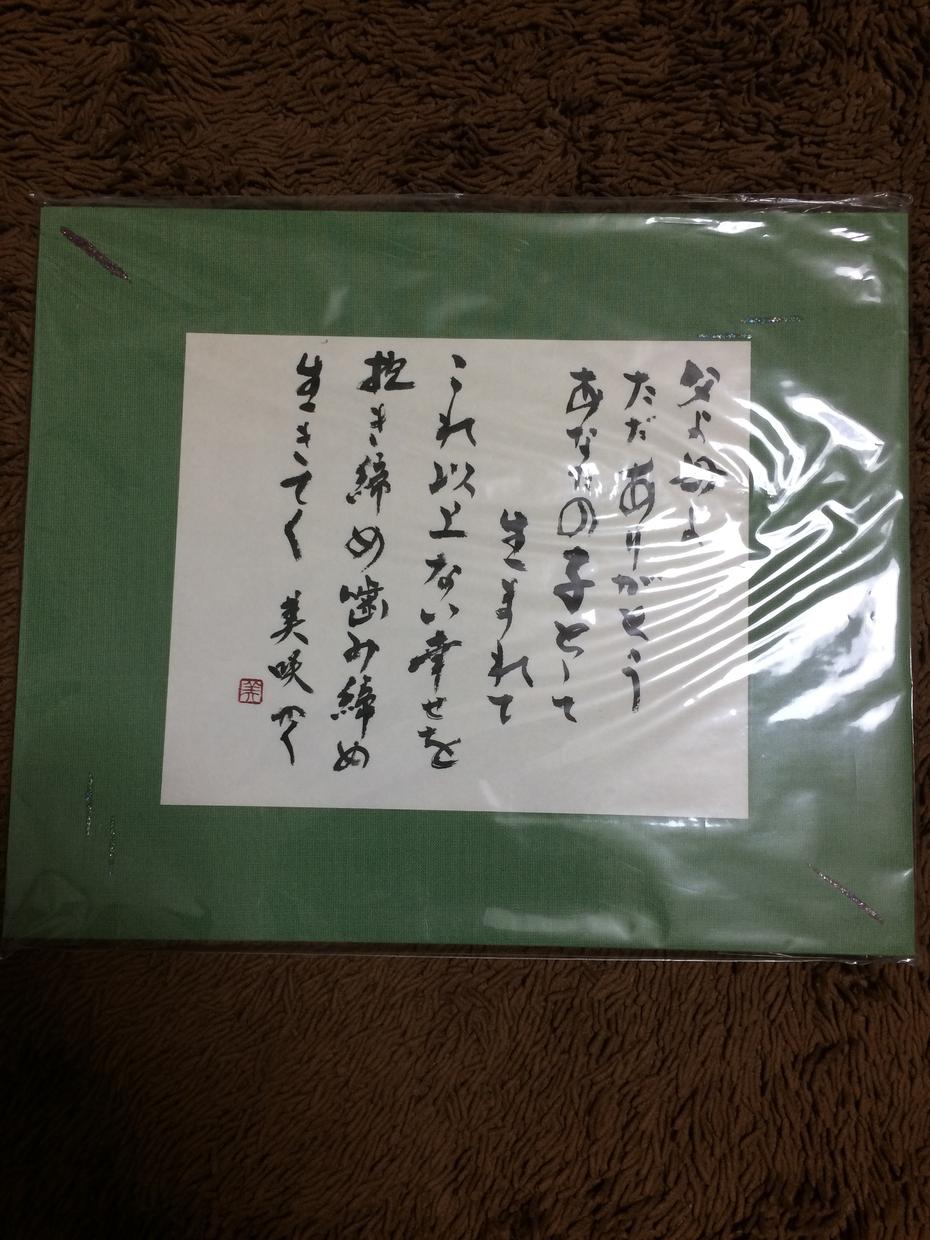 父よ母よ
ただありがとう
あなたの子として
生まれて
これ以上ない幸せを
抱き締め噛み締め
生きてく 美咲 かく
美